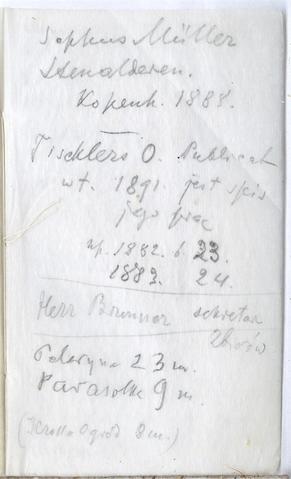 Sophus Müller
Stenalderen.
Kopenh. 1888.
Tischlers O. Publicat
w t. 1891. jest spis
jego prac
np. 1882. b. 23.
1883. 24.
Herr Brunner sekretar
zbiorów
Peleryna 23 m.
Parasolka 9 m.
8 m.)